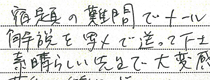 宿題の難問でメール
解説を写メで送って下さ
素晴らしい先生で大変感